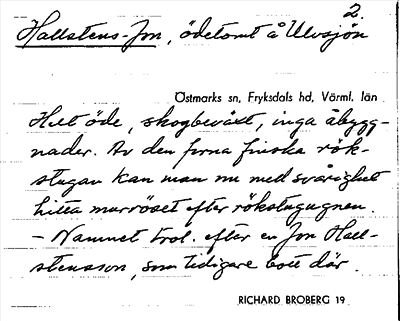 2.
Hallstens-Jon, ödetomt å Ulvsjön
Östmarks sn, Fryksdals hd, Värml. län
Helt öde, skogbeväxt, inga åbygg-
nader. Av den forna finska rök-
stugan kan man nu med svårighet
hitta murröset efter rökstugugnen.
– Namnet trol. efter en Jon Hall-
stensson, som tidigare bott där.
RICHARD BROBERG 19